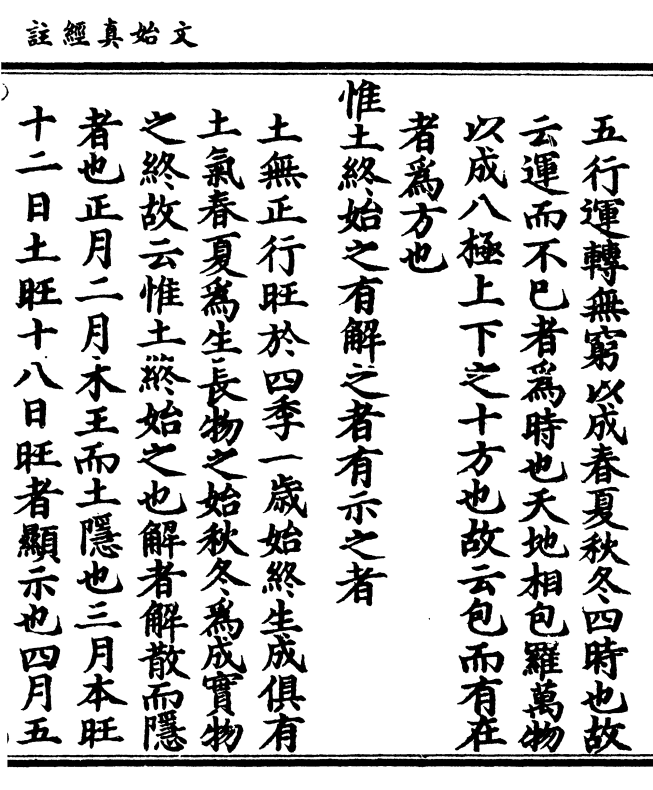 文始真經註
五行運轉無窮以成春夏秋冬四時也故
云運而不已者爲時也天地相包羅萬物
以成八極上下之十方也故云包而有在
者爲方也
惟土終始之有解之者有示之者
土無正行旺於四季一歲始終生成俱有
土氣春夏爲生長物之始秋冬爲成實物
之終故云惟土終始之也解者解散而隱
者也正月二月木王而土隱也三月本旺
十二日土旺十八日旺者顯示也四月五